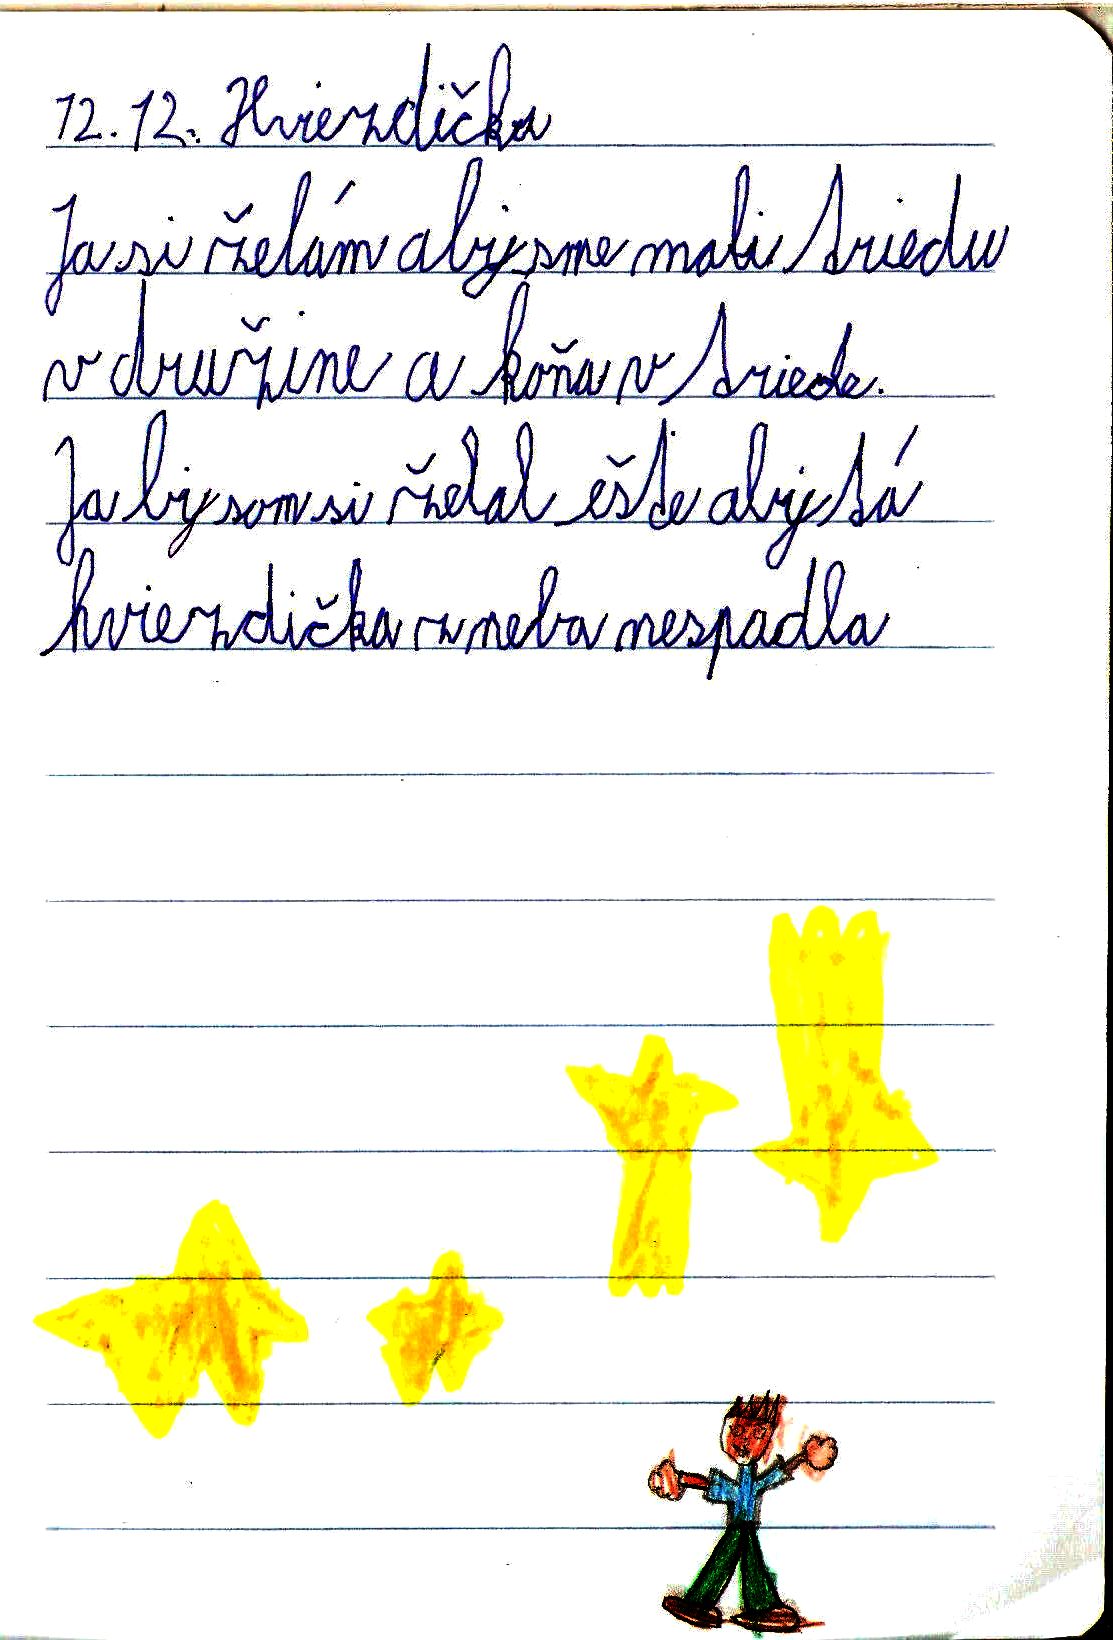 12.12. Hviezdička
Ja si želám aby sme mali triedu
v družine a koňa v triede.
Ja by som si želal ešte aby tá
hviezdička z neba nespadla